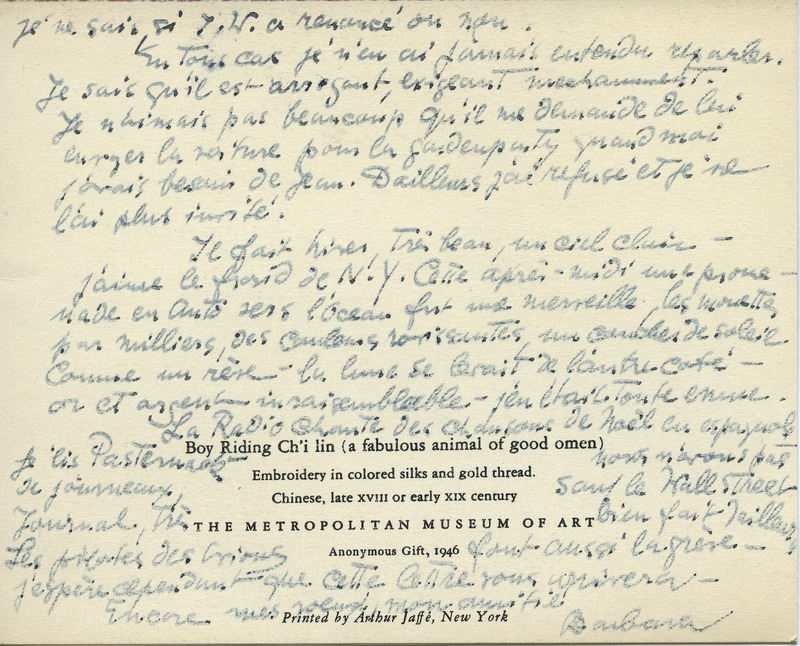 je ne sais si J.W. a renoncé ou non.
En Tous cas je n'en ai jamais entendu reparler.
Je sais qu'il est arrogant, exigeant mechamment.
Je n'aimais pas beaucoup qu'il me demande de lui
envoyer la voiture pour la gardenparty quand moi
j'avais besoin de Jean. D'ailleurs j'ai refusé et je ne
l'ai plus invité.
Il fait hiver, Très beau, un ciel clair –
j'aime le froid de N.Y. Cette après-midi une prome-
nade en Auto vers l'océan fut une merveille, les mouettes
par milliers, des couleurs ravissantes, un coucher de soleil
Comme un rêve – la lune se levait de l'autre coté –
or et argent – j'en était Toute emue.
La Radio chante des chansons de Noël en espagnol
Boy Riding Ch'i lin (a fabulous animal of good omen)
Je lis Pasternack nous n'avons pas
Embroidery in colored silks and gold thread.
de journeaux, sauf le Wall Street
Chinese, late XVIII or early XIX century
Journal, Très bien fait d'ailleurs
THE METROPOLITAN MUSEUM OF ART
Les des avions font aussi la grève –
Anonymous Gift, 1946
j'espère cependant que cette lettre vous arrivera –
Encore mes voeux, mon amitié
Printed by Arthur Jaffé, New York
Barbara